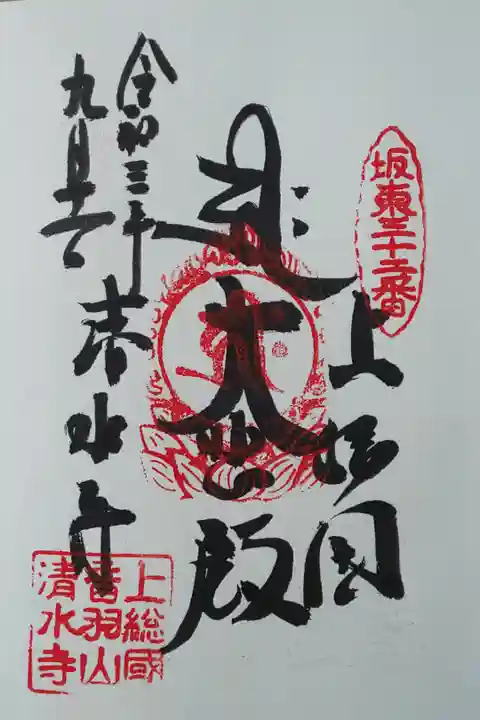 坂東三十二番
上総国
大悲殿
清水寺
令和三年
九月十六
上総國
音羽山
清水寺